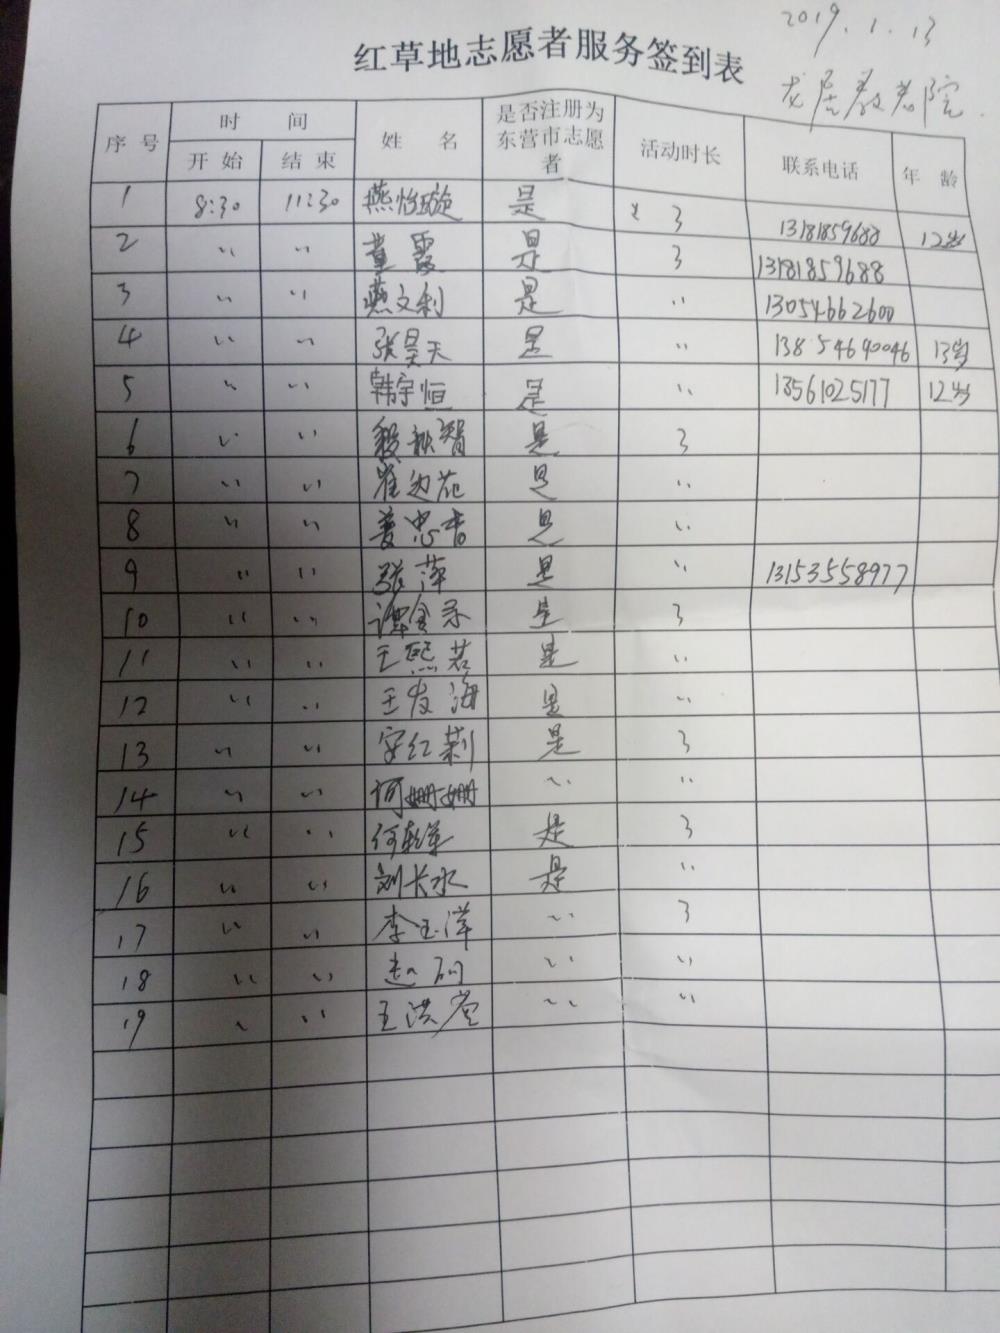 2019.1.13
红草地志愿者服务签到表
龙居敬老院
序号 时间 姓名 是否注册为东营市志愿者 活动时长 联系电话 年龄
开始 结束
1 8:30 11:30 燕怡璇 是 3 13181859688 12岁
2 〃 〃 董霞 是 3 13181859688
3 〃 〃 燕文利 是 〃 13054662600
4 〃 〃 张昊天 是 〃 13854690046 13岁
5 〃 〃 韩宇恒 是 〃 13561025177 12岁
6 〃 〃 是 3
7 〃 〃 崔 花 是 〃
8 〃 〃 姜忠 是 〃
9 〃 〃 张萍 是 〃 13153558977
10 〃 〃 谭金 是 3
11 〃 〃 王熙若 是 〃
12 〃 〃 王友海 是 〃
13 〃 〃 红莉 是 3
14 〃 〃 姗姗 〃 〃
15 〃 〃 何 是 3
16 〃 〃 刘长水 是 〃
17 〃 〃 李玉洋 〃 3
18 〃 〃 赵 〃 〃
19 〃 〃 王洪 〃 〃